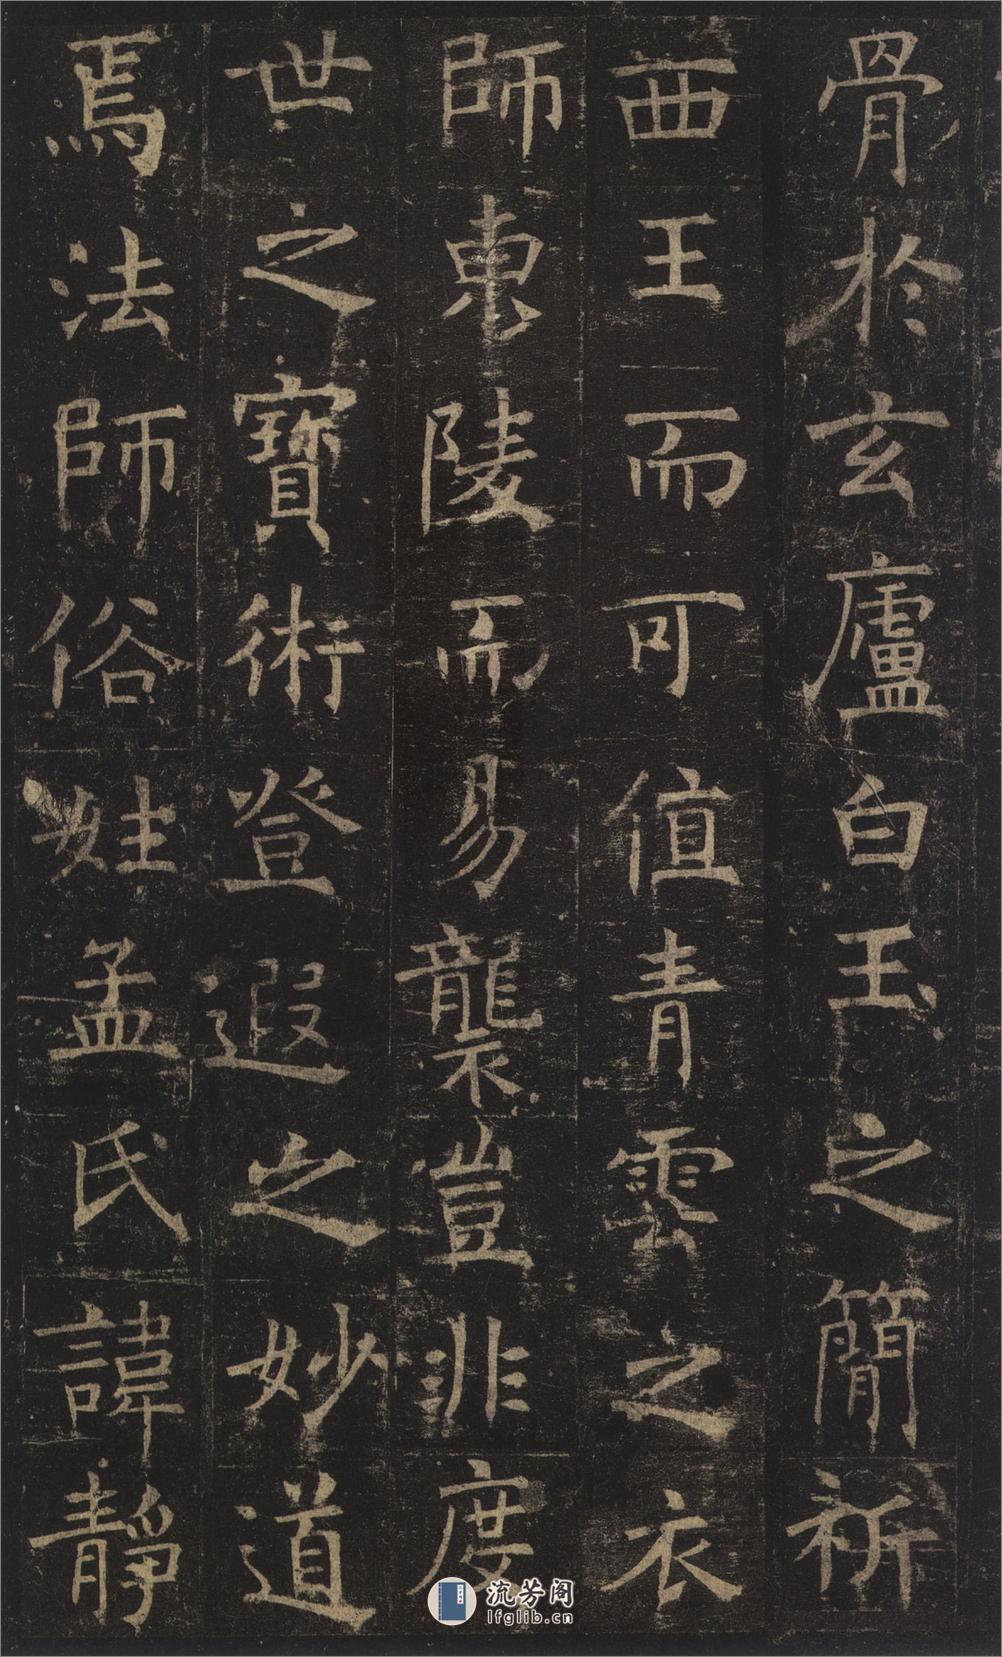 骨於玄廬白玉之簡祈
西王而可值青雲之衣
師東陵而易襲豈非度
世之寶術登遐之妙道
焉法師俗姓孟氏諱靜
流芳阁
lfglib.cn